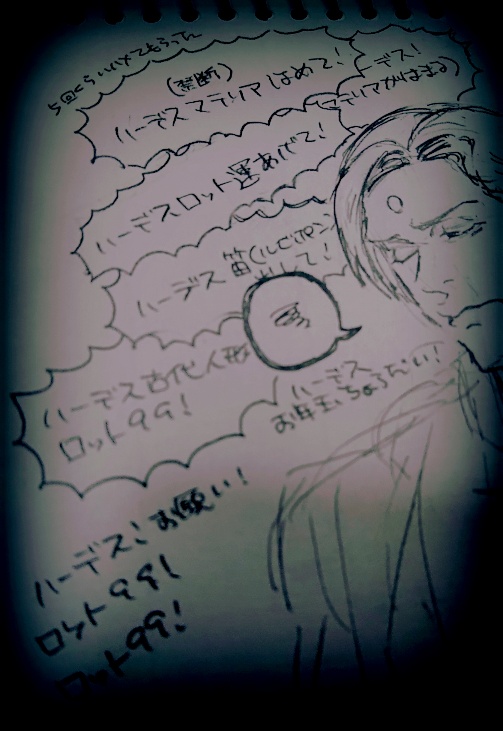 5回くらいハメてもらった
(禁断)
ハーデスマテリアはめて!
デス!
マテリアがはまる)
ハーデスロット運あげて!
ハーデス笛(ルビカンテ
出して!
ハーデス古代人形
ロット99!
ハーデス
お年玉ちょうだい!
ハーデスお願い!
ロット99!
ロット99!